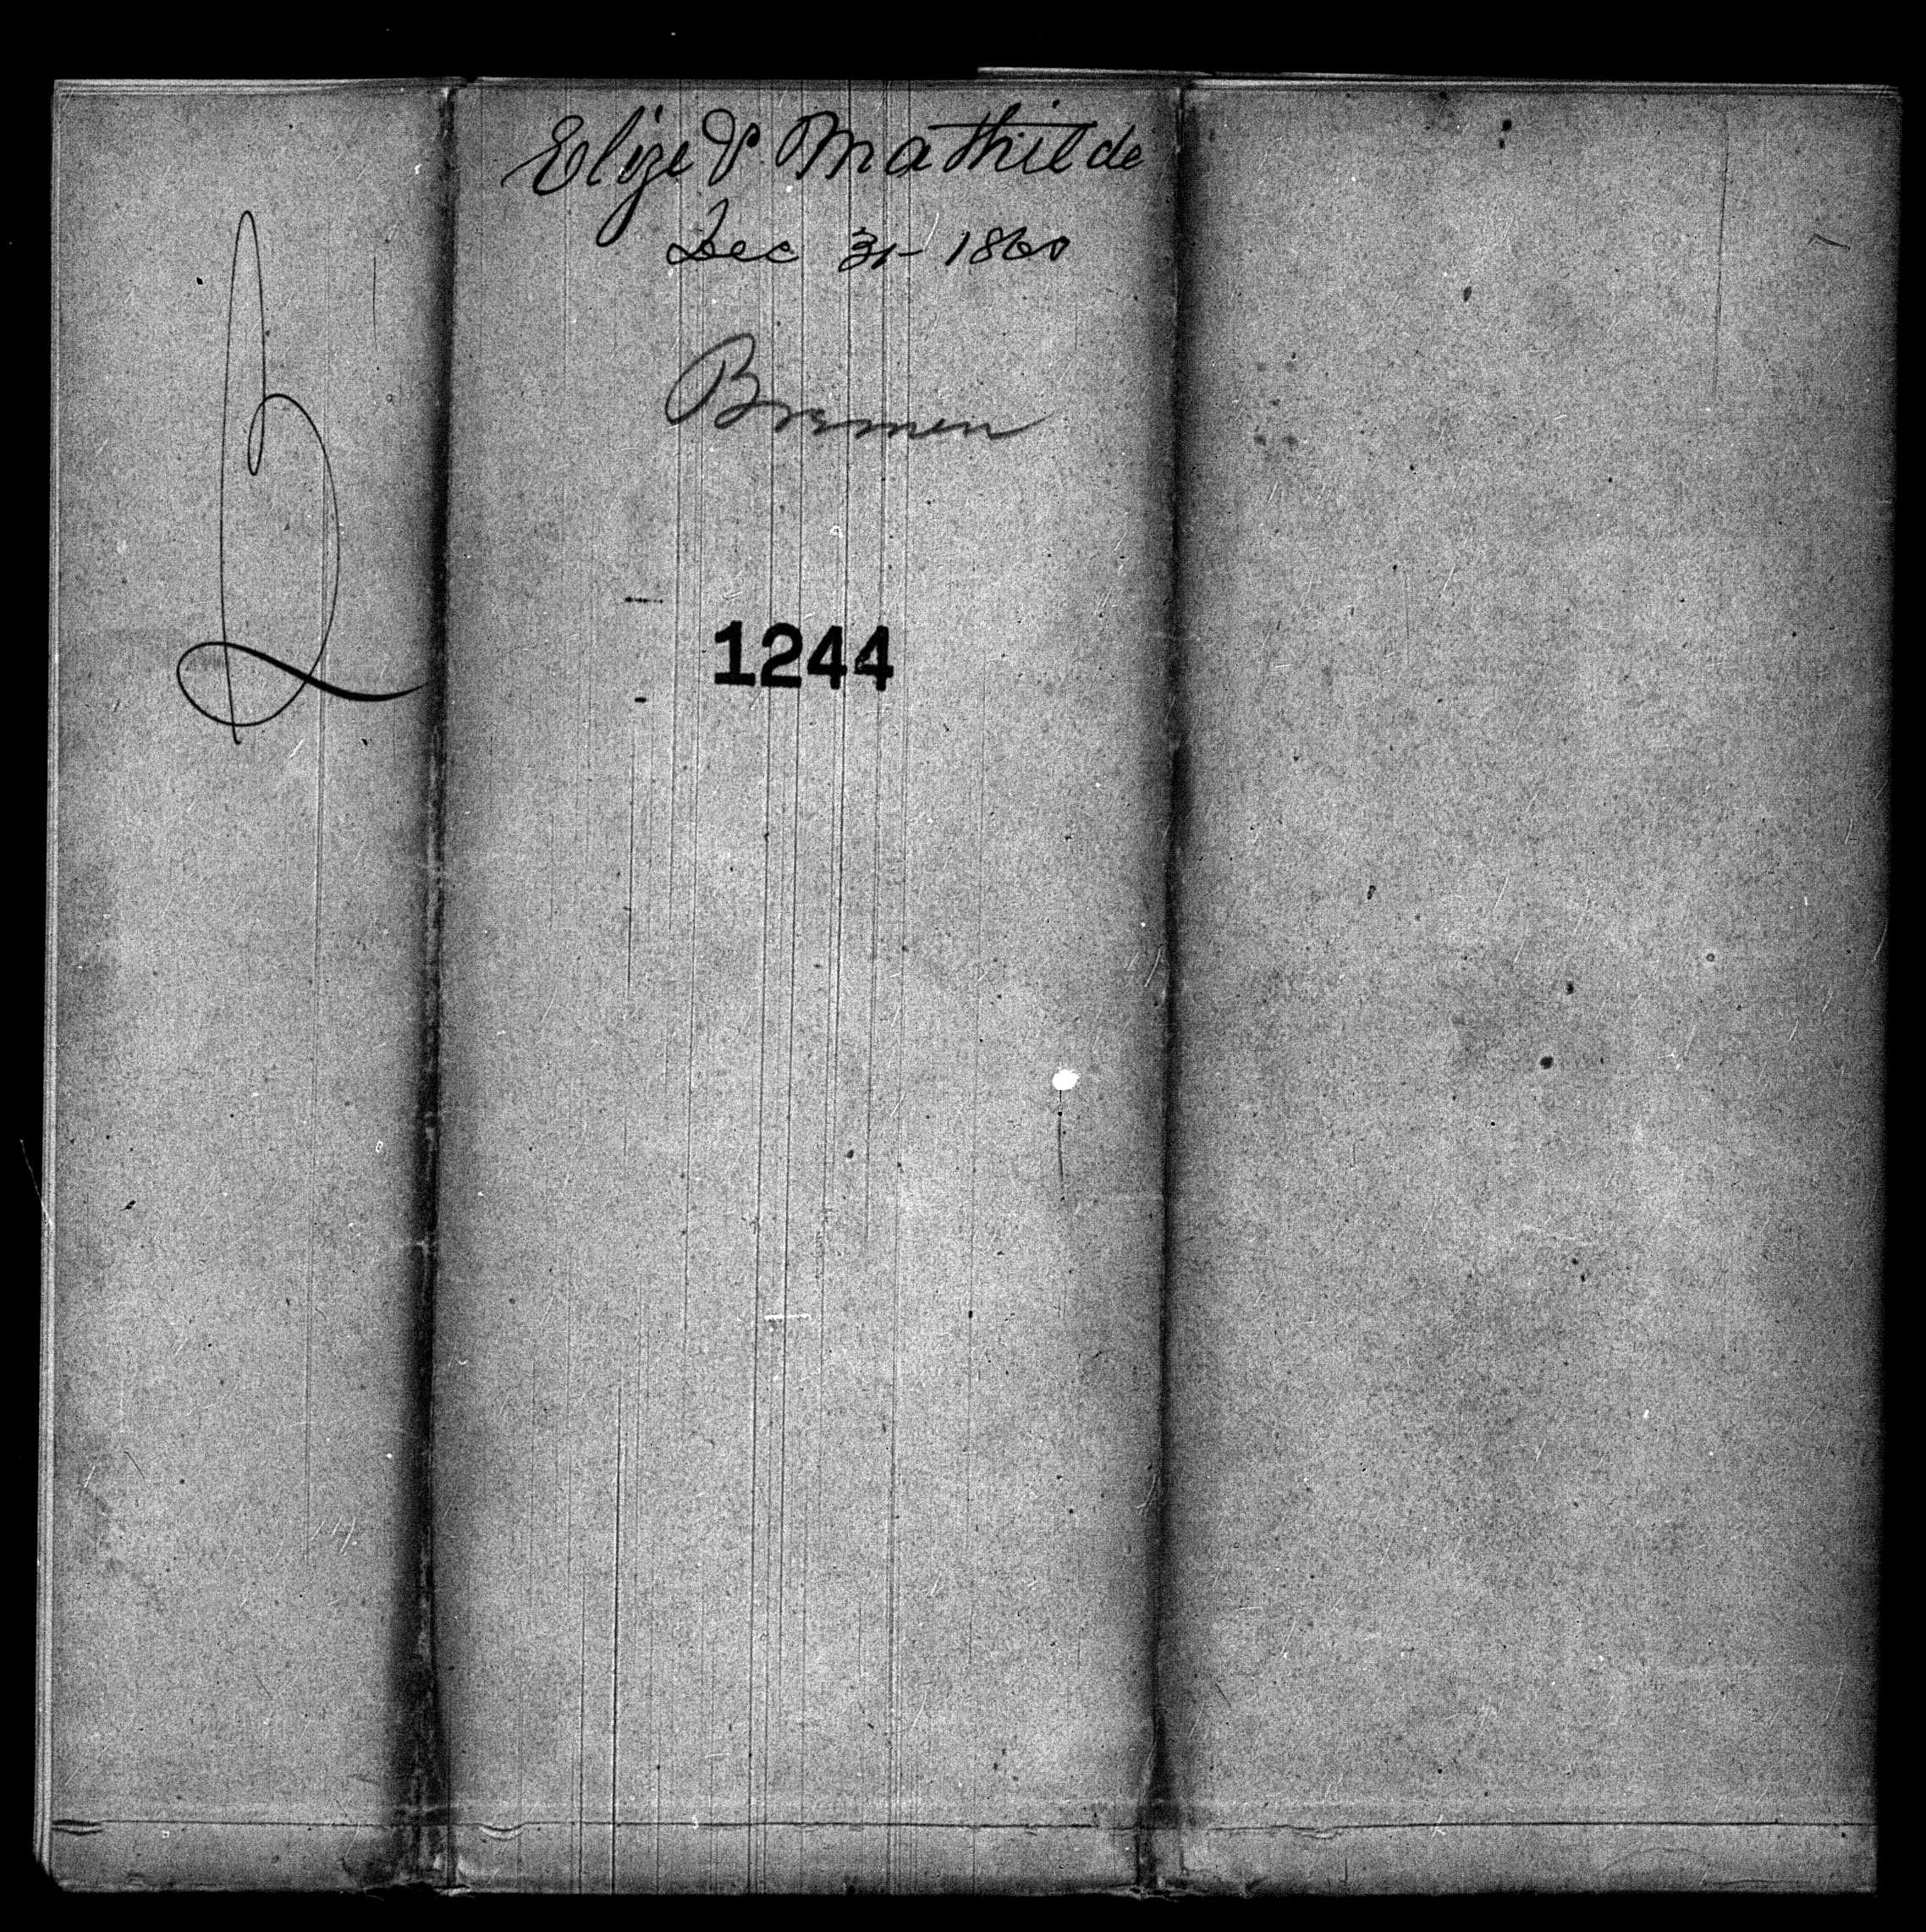 Elize & Mathilde
Dec 31 - 1860
Bremen
1244